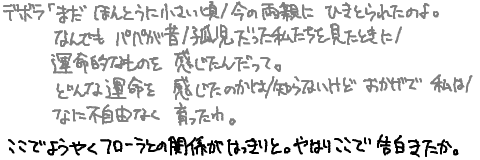 デボラ「まだ ほんとうに小さい頃/今の両親に ひきとられたのよ。
なんでも パパが昔/孤児だった私たちを見たときに/
運命的なものを 感じたんだって。
どんな運命を 感じたのかは/知らないけど おかげで 私は/
なに不自由なく 育ったわ。
ここでようやくフローラとの関係が はっきりと。やはりここで 告白きたか。